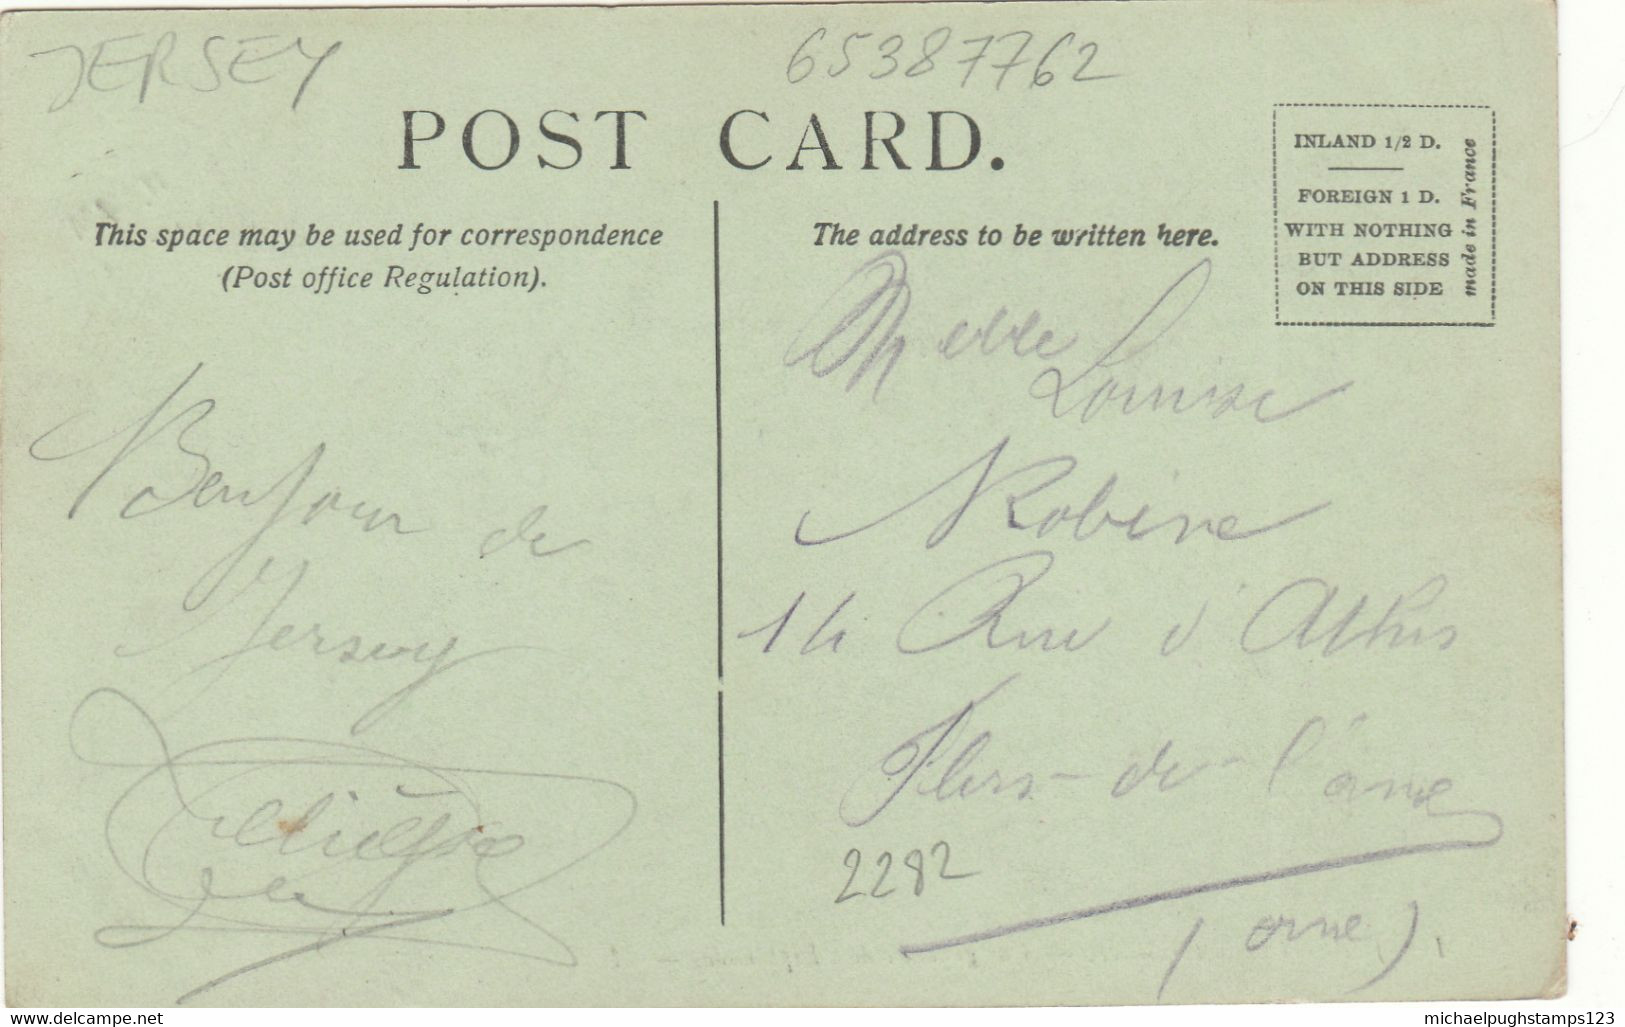 JERSEY
65387762
POST CARD.
This space may be used for correspondence
(Post office Regulation).
The address to be written here.
INLAND 1/2 D.
FOREIGN 1 D.
WITH NOTHING
BUT ADDRESS
ON THIS SIDE
made in France
Bonjour de
Jersey
Melle
Louise
Robine
14 Rue d'Athis
Flers-de-l'orne
2282
(orne).
www.delcampe.net
michaelpughstamps123